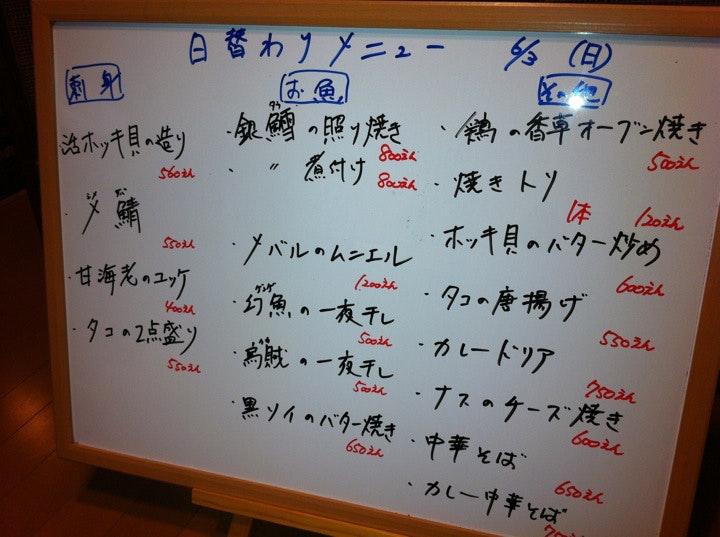 日替わりメニュー 6/3 (日)
刺身
活ホッキ貝の造り
560えん
・〆鯖
550えん
・甘海老のユッケ
400えん
・タコの2点盛り
550えん
お魚
・銀鱈の照り焼き
800えん
・〃煮付け
800えん
・メバルのムニエル
1200えん
・幻魚の一夜干し
500えん
・烏賊の一夜干し
500えん
・黒ソイのバター焼き
650えん
その他
・鶏の香草オーブン焼き
500えん
・焼きトリ
1本 120えん
・ホッキ貝のバター炒め
600えん
・タコの唐揚げ
550えん
・カレードリア
750えん
・ナスのチーズ焼き
600えん
・中華そば
650えん
・カレー中華そば